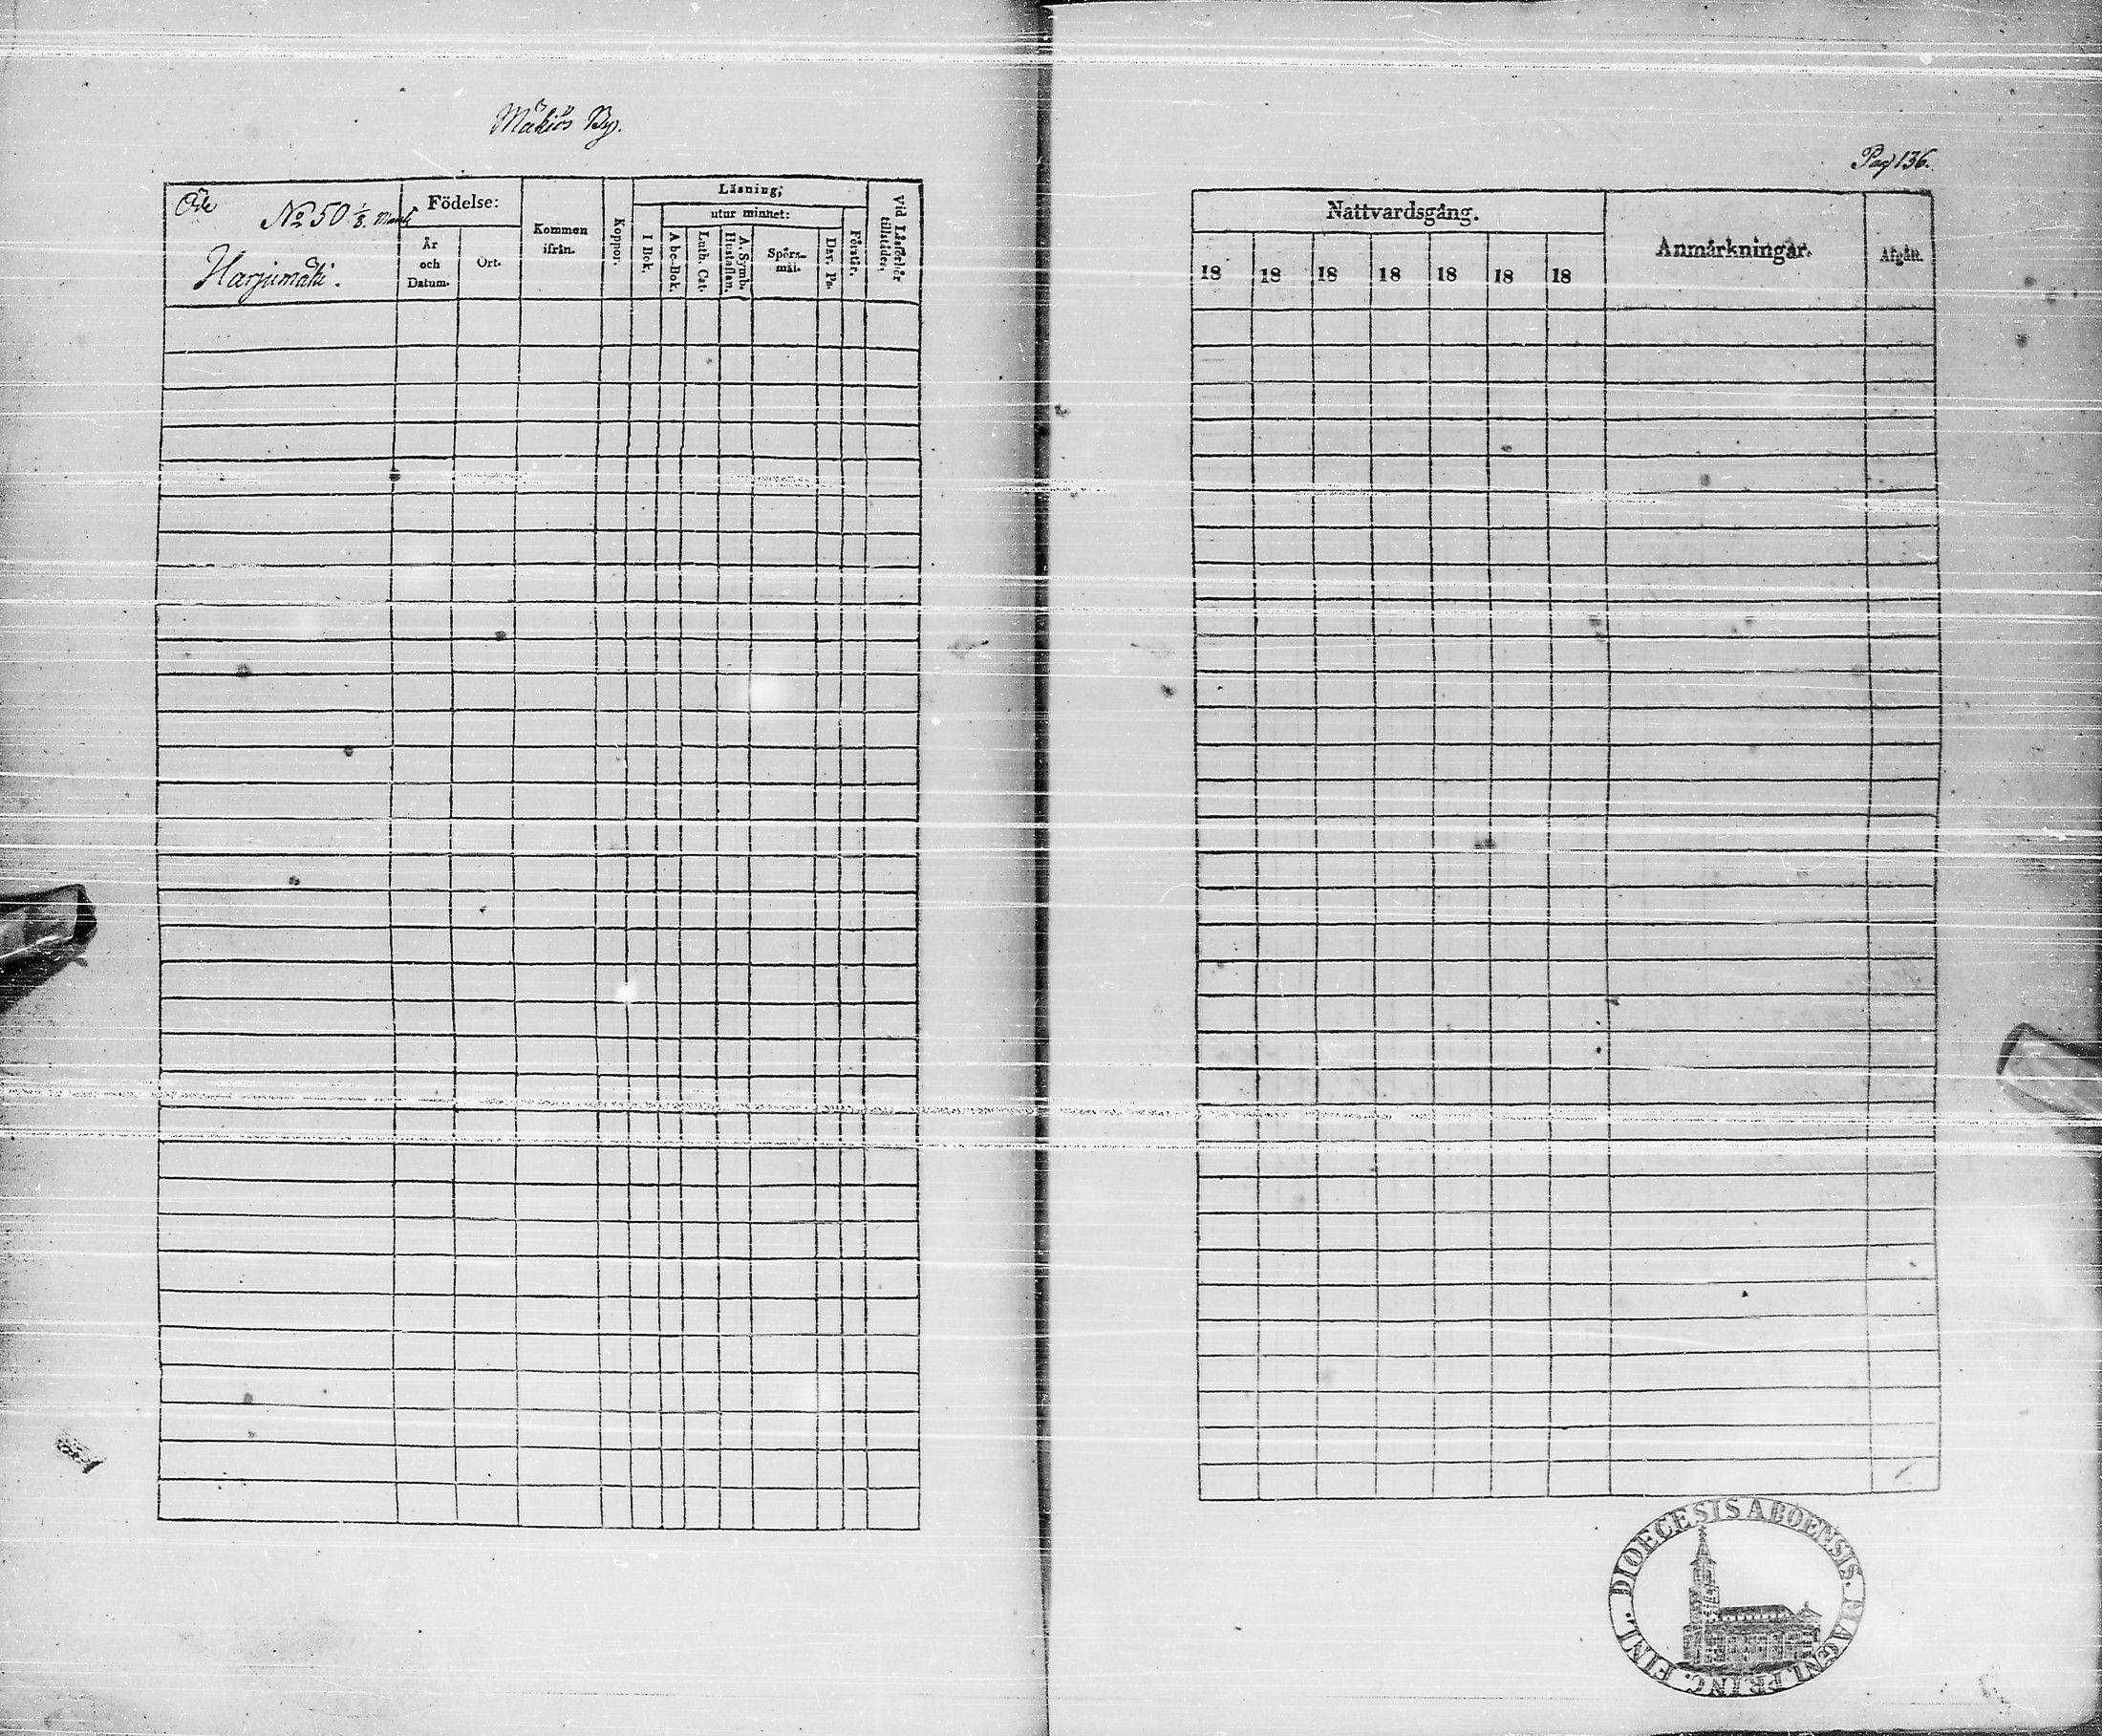 Mäkiös By.
Öde
No 50 1/8. Mantl
Harjumäki.
Födelse:
År och Datum.
Ort.
Kommen ifrån.
Koppor.
Läsning;
I Bok.
utur minnet:
Abc-Bok.
Luth. Cat.
A. Symb. Hustaflan.
Spörsmål.
Dav. Ps.
Förstår.
Vid Läsförhör tillstädes.
Pag 136.
Nattvardsgång.
18 18 18 18 18 18 18
Anmärkningar.
Afgått.
DIOECESIS ABOENSIS. MAGNI PRINC. FINL.